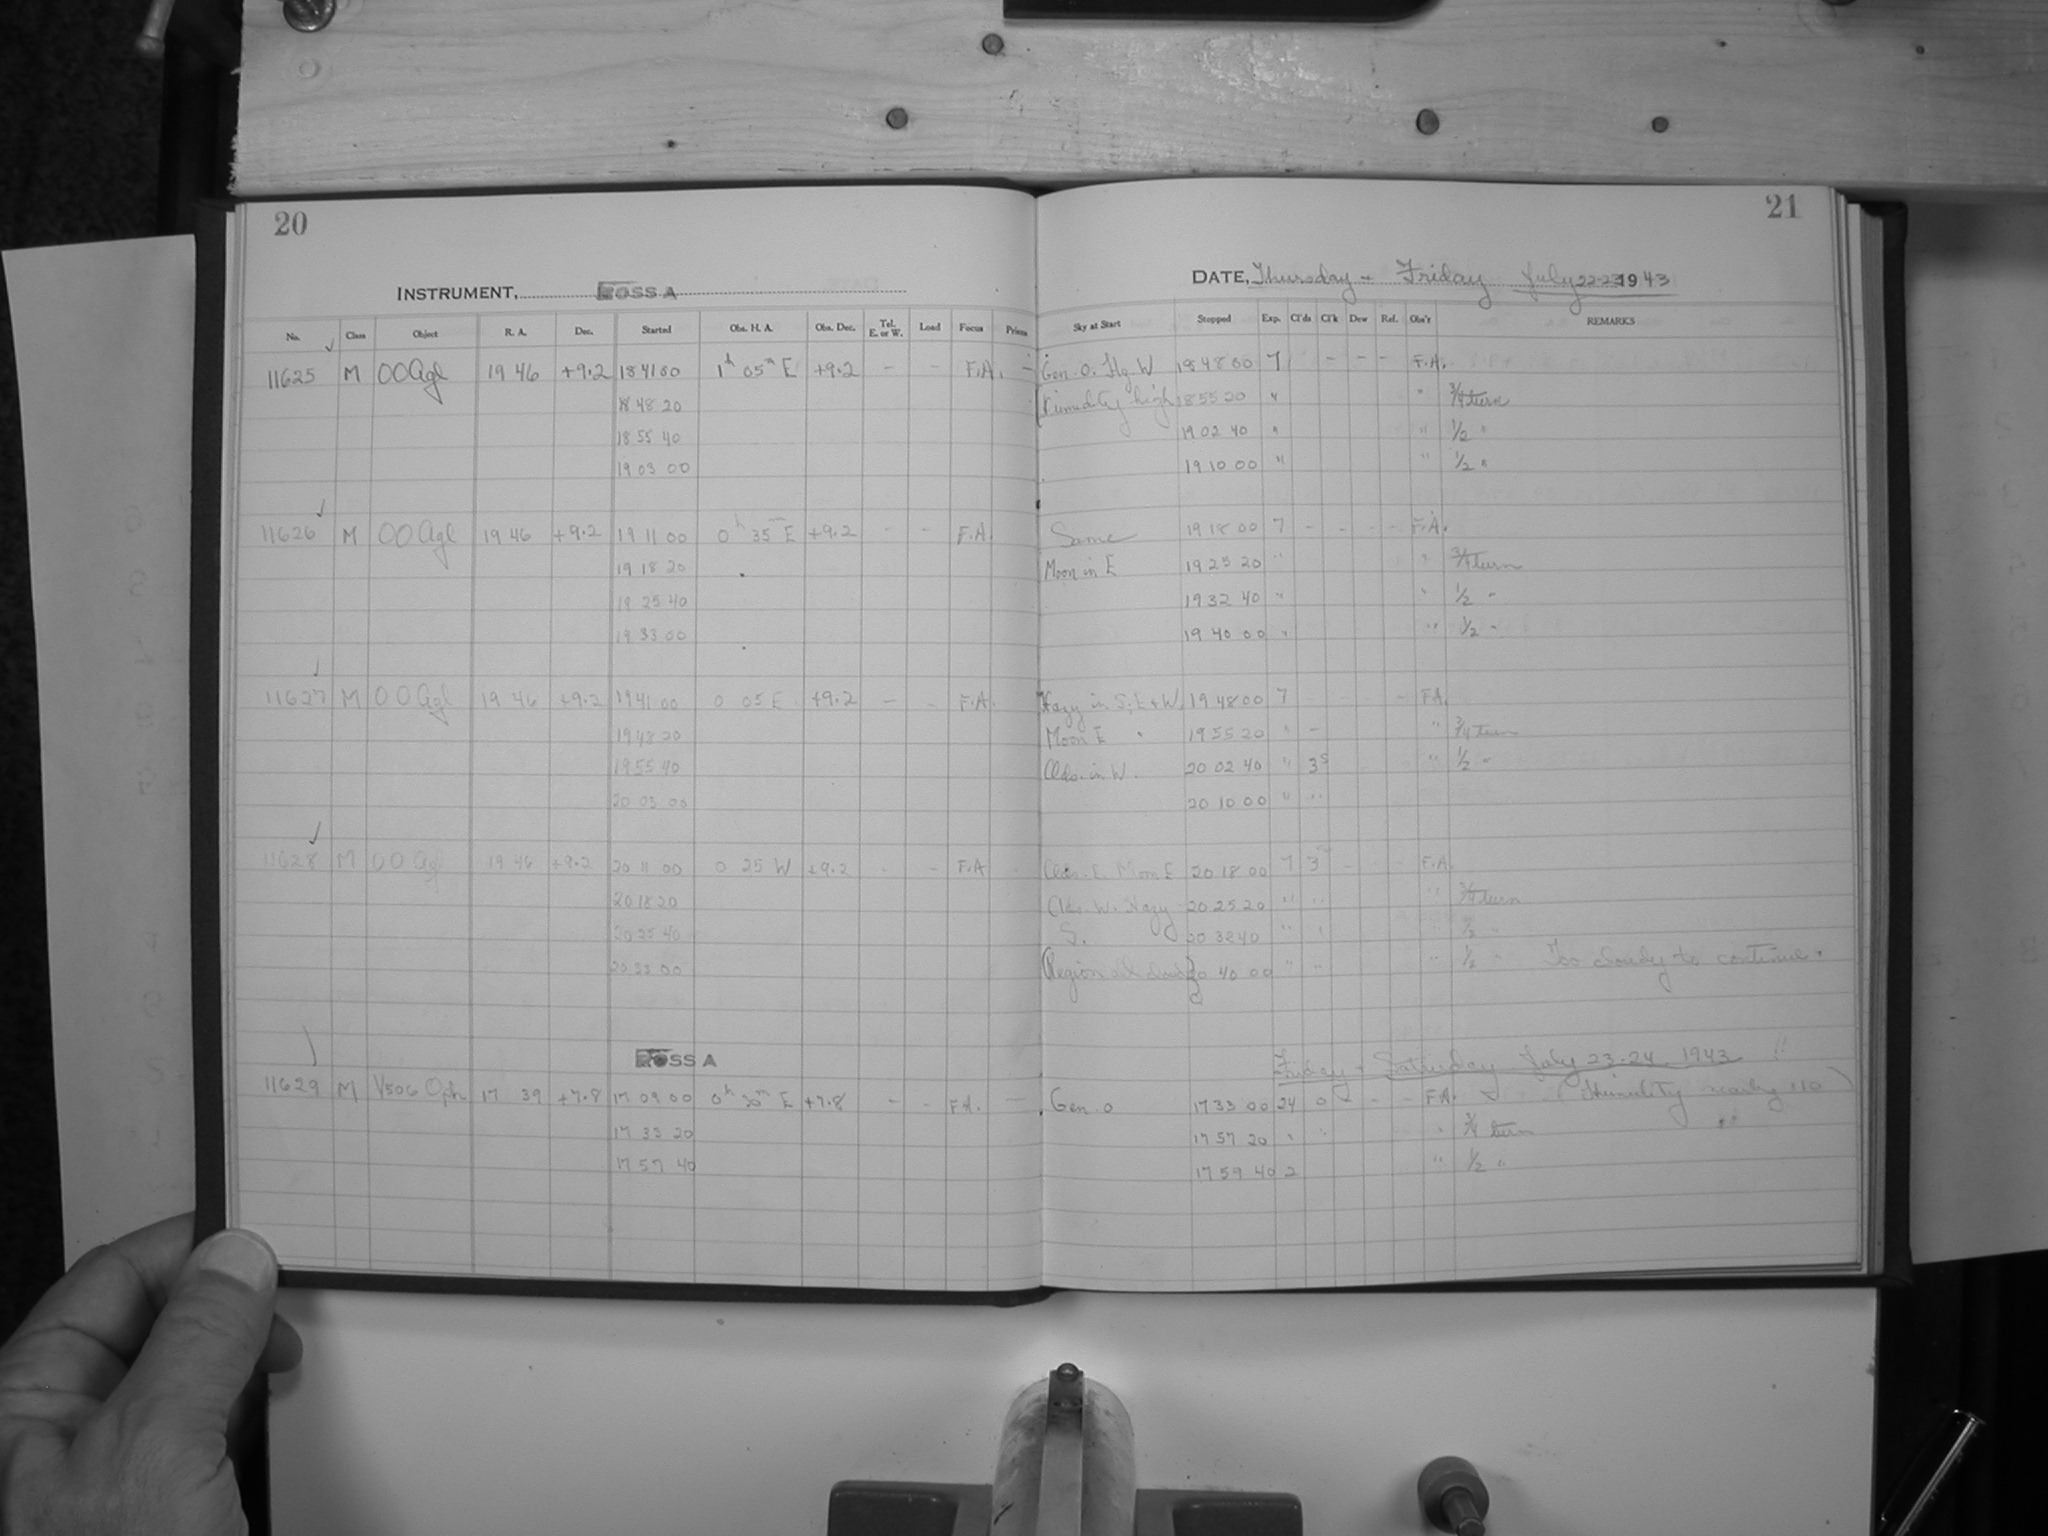 20
INSTRUMENT, ROSS A
No. Class Object R. A. Dec. Started Obs. H. A. Obs. Dec. Tel. E. or W. Load Focus Prisms
11625 M OO Aql 19 46 +9.2 18 41 00 1h 05m E +9.2 - - F.A. -
18 48 20
18 55 40
19 03 00
11626 M OO Aql 19 46 +9.2 19 11 00 0h 35m E +9.2 - - F.A.
19 18 20
19 25 40
19 33 00
11627 M OO Aql 19 46 +9.2 19 41 00 0 05 E +9.2 - - F.A.
19 48 20
19 55 40
20 03 00
11628 M OO Aql 19 46 +9.2 20 11 00 0 25 W +9.2 - - F.A
20 18 20
20 25 40
20 33 00
ROSS A
11629 M V506 Oph 17 39 +7.8 17 09 00 0h 30m E +7.8 - - F.A. -
17 33 20
17 57 40
21
DATE, Thursday - Friday July 22-23 1943
Sky at Start Stopped Exp. Cl'ds Cl'k Dew Ref. Obs'r REMARKS
Gen. 0. W 18 48 00 7 - - - F.A.
Humidity high 18 55 20 " " 3/4 turn
19 02 40 " " 1/2 "
19 10 00 " " 1/2 "
Same 19 18 00 7 - - - - F.A.
Moon in E 19 25 20 " " 3/4 turn
19 32 40 " " 1/2 "
19 40 00 " " 1/2 "
Hazy in S, E + W. 19 48 00 7 - - - - F.A.
Moon E 19 55 20 " - " 3/4 turn
Clds. in W. 20 02 40 " 3s " 1/2 "
20 10 00 " "
Clds. E. Moon E 20 18 00 7 3 - - - F.A.
Clds. W. Hazy 20 25 20 " " " 3/4 turn
S. 20 32 40 " " " 1/2 "
(Region all 20 40 00 " " " 1/2 " Too cloudy to continue.
Friday - Saturday July 23-24, 1943 !!
Gen. 0 17 33 00 24 0 - - - F.A. (Humidity nearly 110)
17 57 20 " " " 3/4 turn
17 59 40 2 " 1/2 "